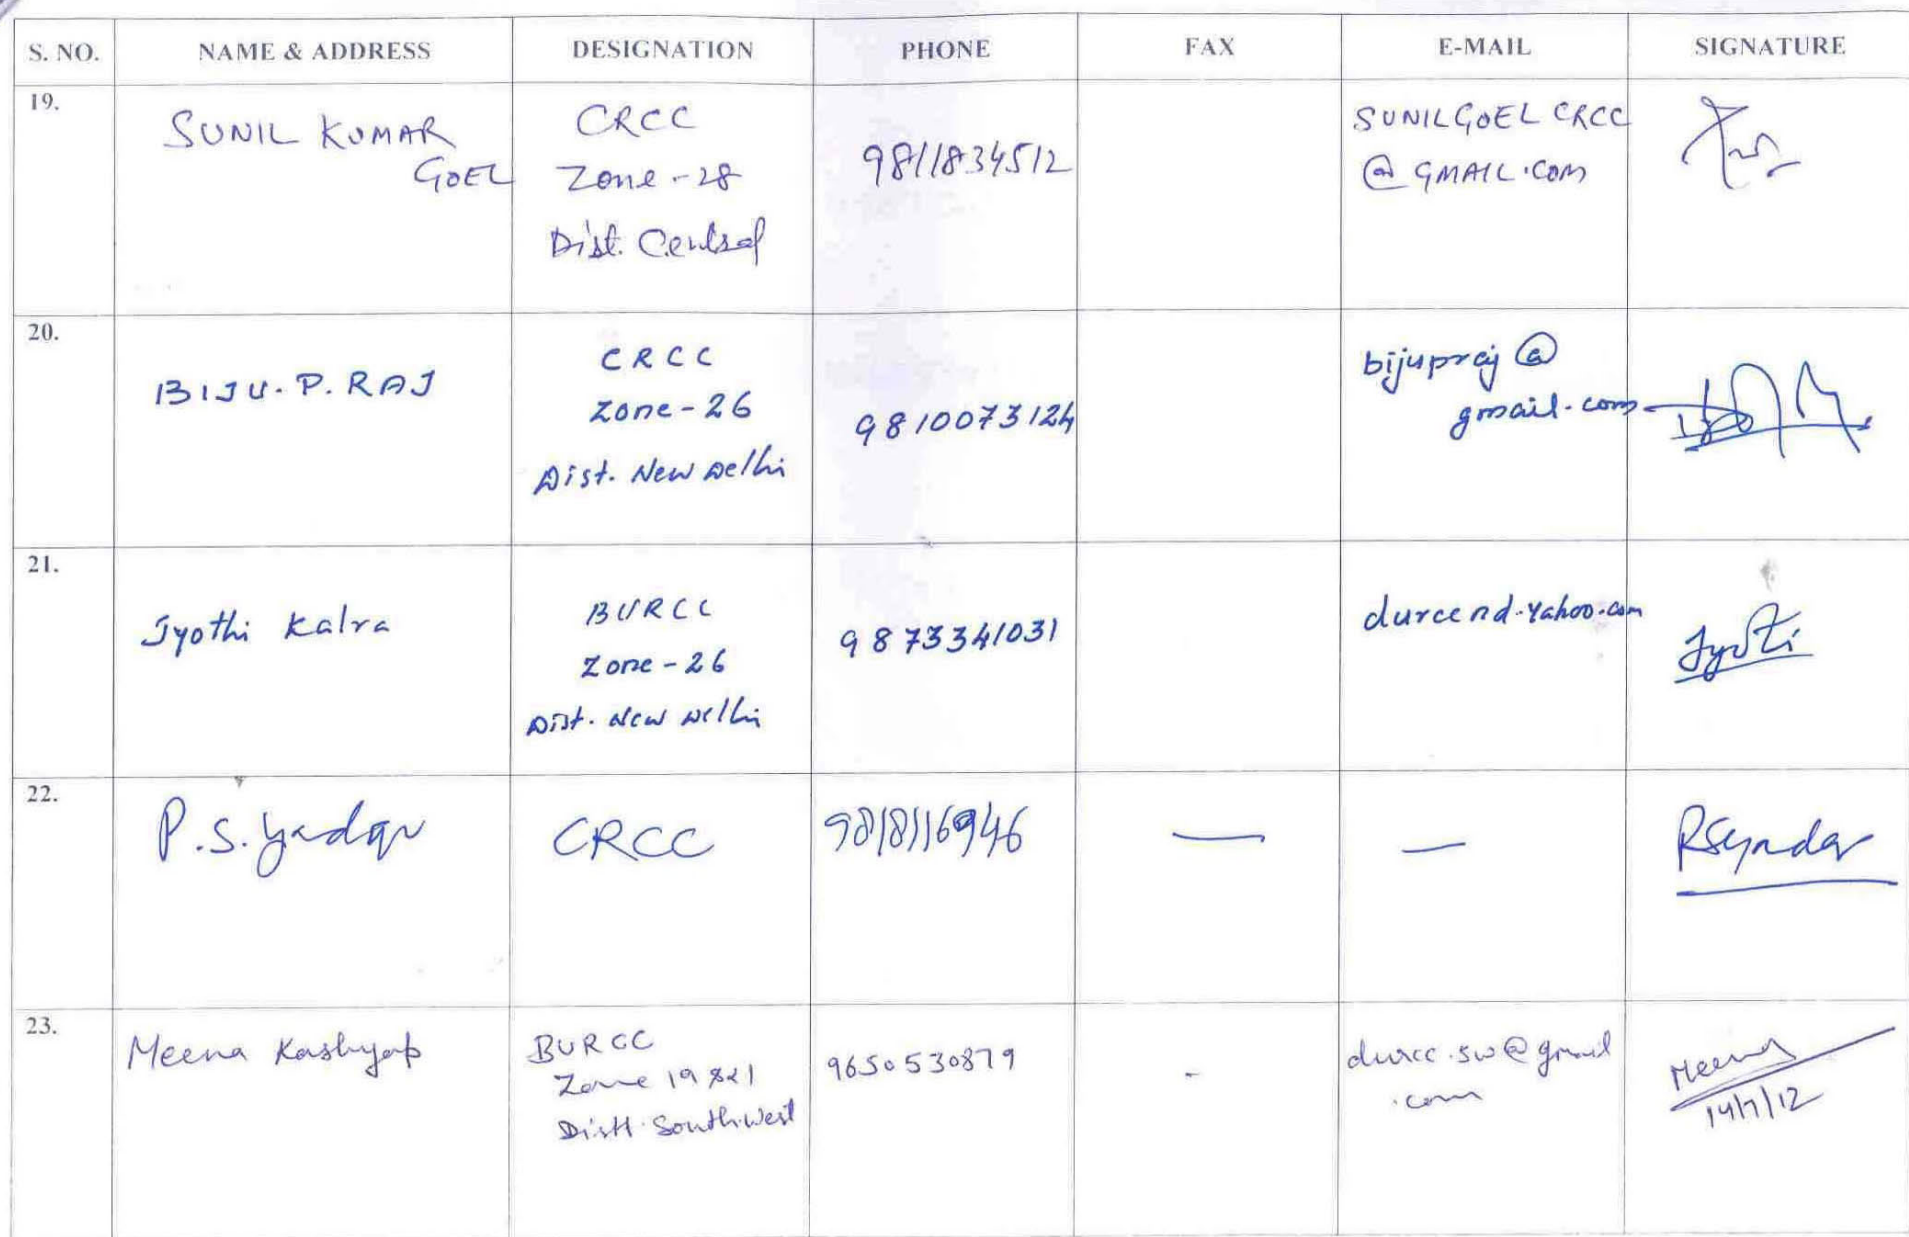 S. NO. NAME & ADDRESS DESIGNATION PHONE FAX E-MAIL SIGNATURE
19.
SUNIL KUMAR
GOEL
CRCC
Zone - 28
Dist. Central
9811834512
SUNILGOEL CRCC
@ GMAIL.COM
20.
BIJU. P. RAJ
CRCC
Zone - 26
Dist. New Delhi
9810073124
bijupraj @
gmail.com
21.
Jyothi Kalra
BURCC
Zone - 26
Dist. New Delhi
9873341031
durccnd.yahoo.com
Jyoti
22.
P.S. Yadav
CRCC
9818116946
—
—
PSYadav
23.
Meena Kashyap
BURCC
Zone 19 & 21
Distt. Southwest
9650530879
-
durcc.sw@gmail
.com
Meena
14/7/12